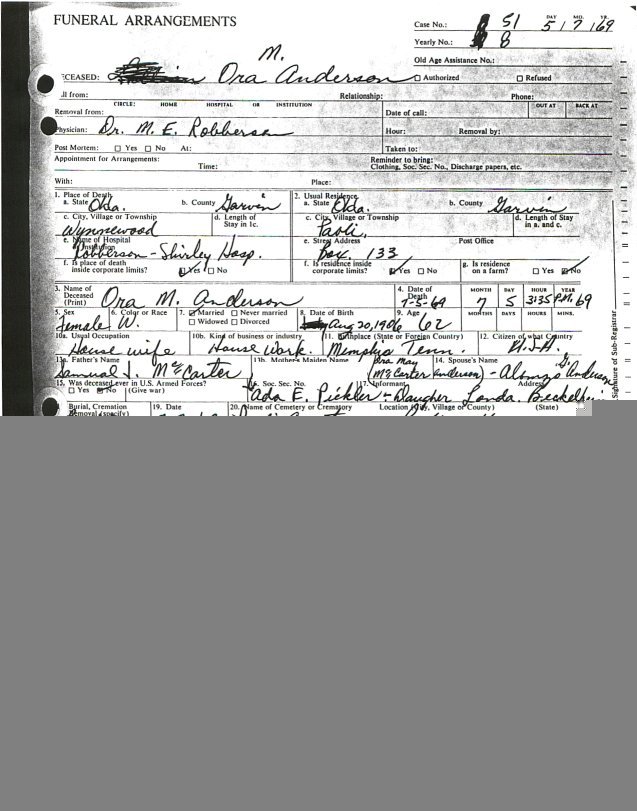 FUNERAL ARRANGEMENTS
Case No.: 51 5 7 69
DAY MO. YR.
Yearly No.: 8
Old Age Assistance No.:
M.
ECEASED: Ora Anderson
Authorized Refused
ll from: Relationship: Phone:
CIRCLE: HOME HOSPITAL OR INSTITUTION OUT AT BACK AT
Removal from: Date of call:
Physician: Dr. M. E. Robberson Hour: Removal by:
Post Mortem: Yes No At: Taken to:
Appointment for Arrangements: Time: Reminder to bring:
Clothing, Soc. Sec. No., Discharge papers, etc.
With: Place:
1. Place of Death 2. Usual Residence
a. State Okla. b. County Garvin a. State Okla. b. County Garvin
c. City, Village or Township d. Length of Stay in 1c. c. City, Village or Township d. Length of Stay in a. and c.
Wynnewood Paoli,
e. Name of Hospital Institution e. Street Address Post Office
Robberson - Shirley Hosp. Box 133
f. Is place of death inside corporate limits? Yes No f. Is residence inside corporate limits? Yes No g. Is residence on a farm? Yes No
3. Name of Deceased (Print) Ora M. Anderson 4. Date of Death 7-5-69 MONTH DAY HOUR YEAR
7 5 3:35 P.M. 69
5. Sex 6. Color or Race 7. Married Never married 8. Date of Birth 9. Age MONTHS DAYS HOURS MINS.
Female W. Widowed Divorced Aug 20, 1906 62
10a. Usual Occupation 10b. Kind of business or industry 11. Birthplace (State or Foreign Country) 12. Citizen of what Country
House wife House Work. Memphis Tenn. U.S.A.
13a. Father's Name 13b. Mother's Maiden Name 14. Spouse's Name
Samual J. McCarter Ora May (McCarter Anderson) - Alonzo G. Anderson
15. Was deceased ever in U.S. Armed Forces? 16. Soc. Sec. No. 17. Informant Address
Yes No (Give war) Ada E. Pickler - Daugher Londa Beckelhi
Burial, Cremation Removal (specify) 19. Date 20. Name of Cemetery or Crematory Location (City, Village or County) (State)
Signature of Sub-Registrar